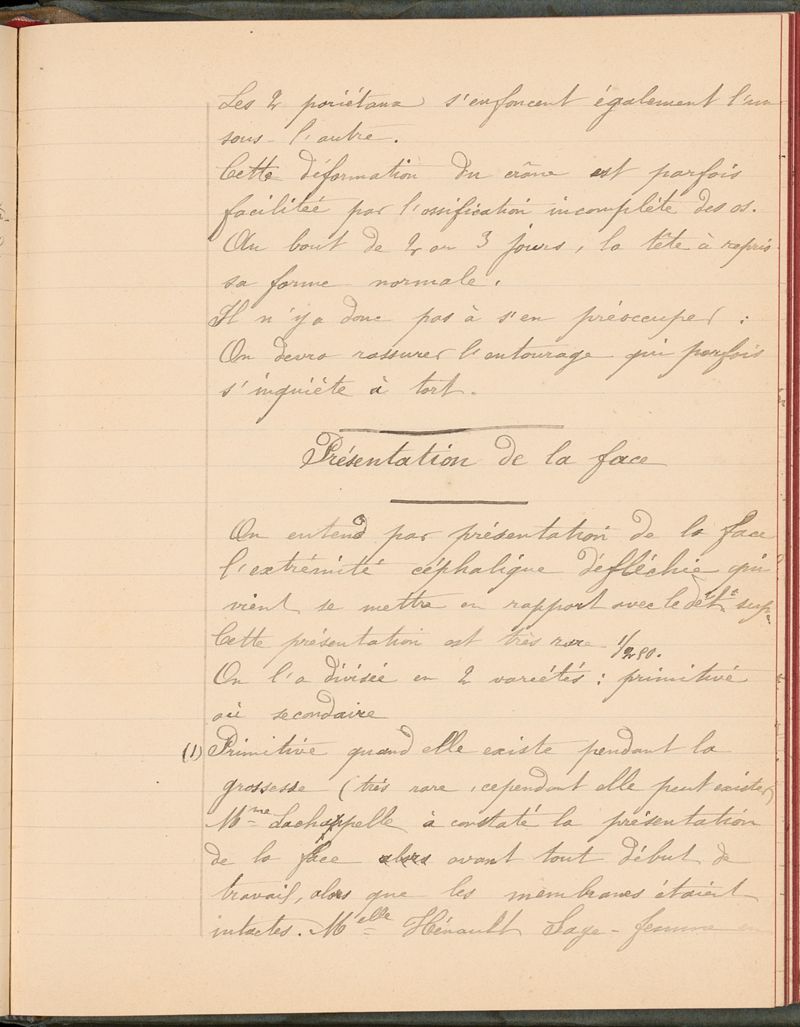 Les 2 pariétaux s'enfoncent également l'un
sous l'autre.
Cette déformation du crâne est parfois
facilitée par l'ossification incomplète des os.
Au bout de 2 ou 3 jours, la tête à repris
sa forme normale.
Il n'y a donc pas à s'en préoccuper :
On devra rassurer l'entourage qui parfois
s'inquiète à tort.
Présentation de la face
On entend par présentation de la face
l'extrémité céphalique défléchie qui
vient se mettre en rapport avec le dét^t sup^r
Cette présentation est très rare 1/250.
On l'a divisée en 2 variétés : primitive
où secondaire
(1) Primitive quand elle existe pendant la
grossesse (très rare, cependant elle peut exister)
M^me Lachappelle à constaté la présentation
de la face alors avant tout début de
travail, alors que les membranes étaient
intactes. M^elle Hénault Sage-femme en